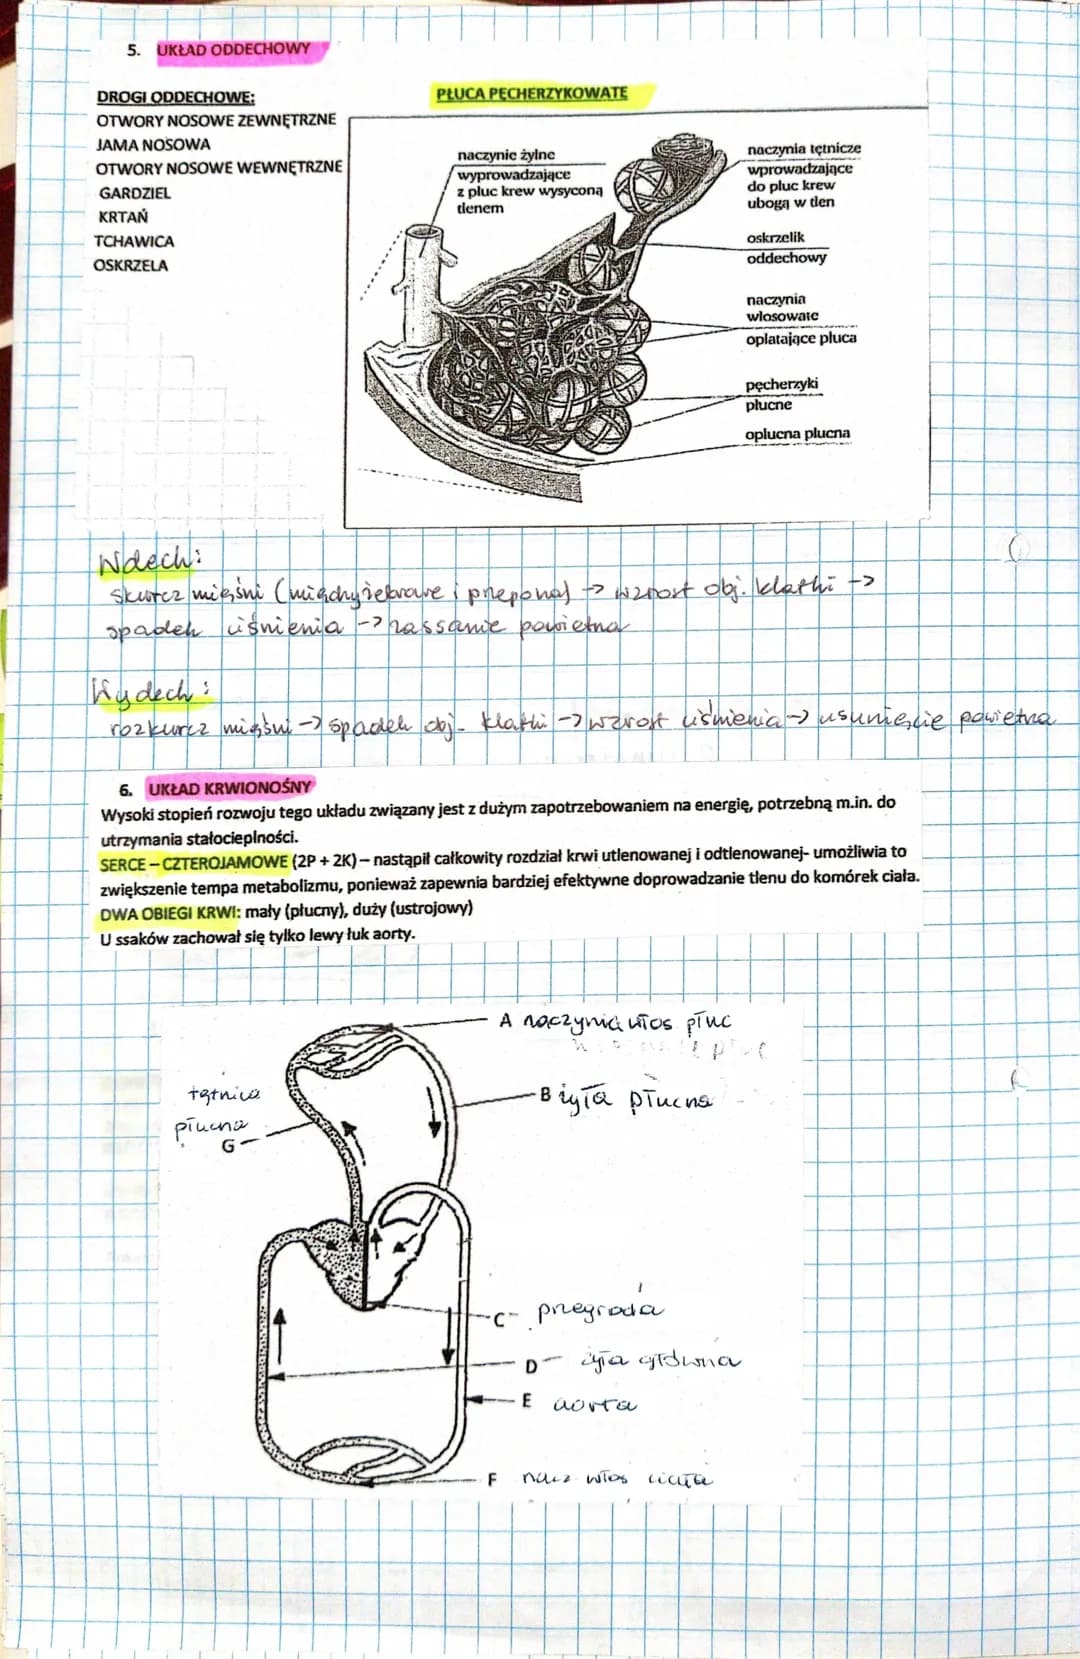 5. UKŁAD ODDECHOWY
DROGI ODDECHOWE:
OTWORY NOSOWE ZEWNĘTRZNE
JAMA NOSOWA
OTWORY NOSOWE WEWNĘTRZNE
GARDZIEL
KRTAŃ
TCHAWICA
OSKRZELA
PŁUCA PĘCHERZYKOWATE
naczynie żylne
wyprowadzające
z płuc krew wysyconą
tlenem
naczynia tętnicze
wprowadzające
do płuc krew
ubogą w tlen
oskrzelik
oddechowy
naczynia
włosowate
oplatające płuca
pęcherzyki
płucne
opłucna płucna
Wdech:
skurcz mięśni (międzyżebrowe i przepona) -> wzrost obj. klatki ->
spadek ciśnienia -> zassanie powietrza
Wydech:
rozkurcz mięśni -> spadek obj. klatki -> wzrost ciśnienia -> usunięcie powietrza
6. UKŁAD KRWIONOŚNY
Wysoki stopień rozwoju tego układu związany jest z dużym zapotrzebowaniem na energię, potrzebną m.in. do
utrzymania stałocieplności.
SERCE – CZTEROJAMOWE (2P + 2K) – nastąpił całkowity rozdział krwi utlenowanej i odtlenowanej- umożliwia to
zwiększenie tempa metabolizmu, ponieważ zapewnia bardziej efektywne doprowadzanie tlenu do komórek ciała.
DWA OBIEGI KRWI: mały (płucny), duży (ustrojowy)
U ssaków zachował się tylko lewy łuk aorty.
A naczynia włos płuc
B żyła płucna
tętnica
płucna
G
C - przegroda
D - żyła główna
E aorta
F nacz włos ciała